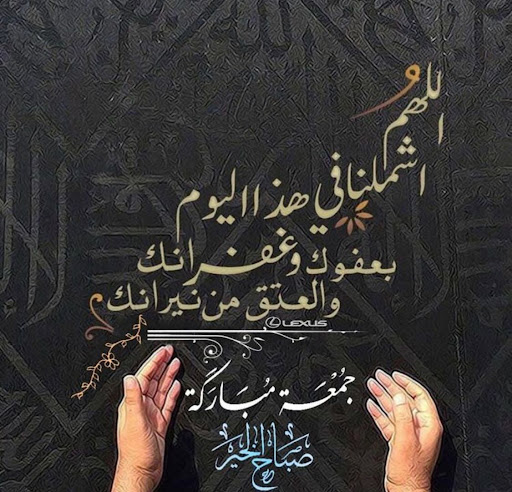 اللهم
اشملنا في هذا اليوم
بعفوك وغفرانك
والعتق من نيرانك
LEXUS
جُمُعَة مُبَارَكَة
صباح الخير